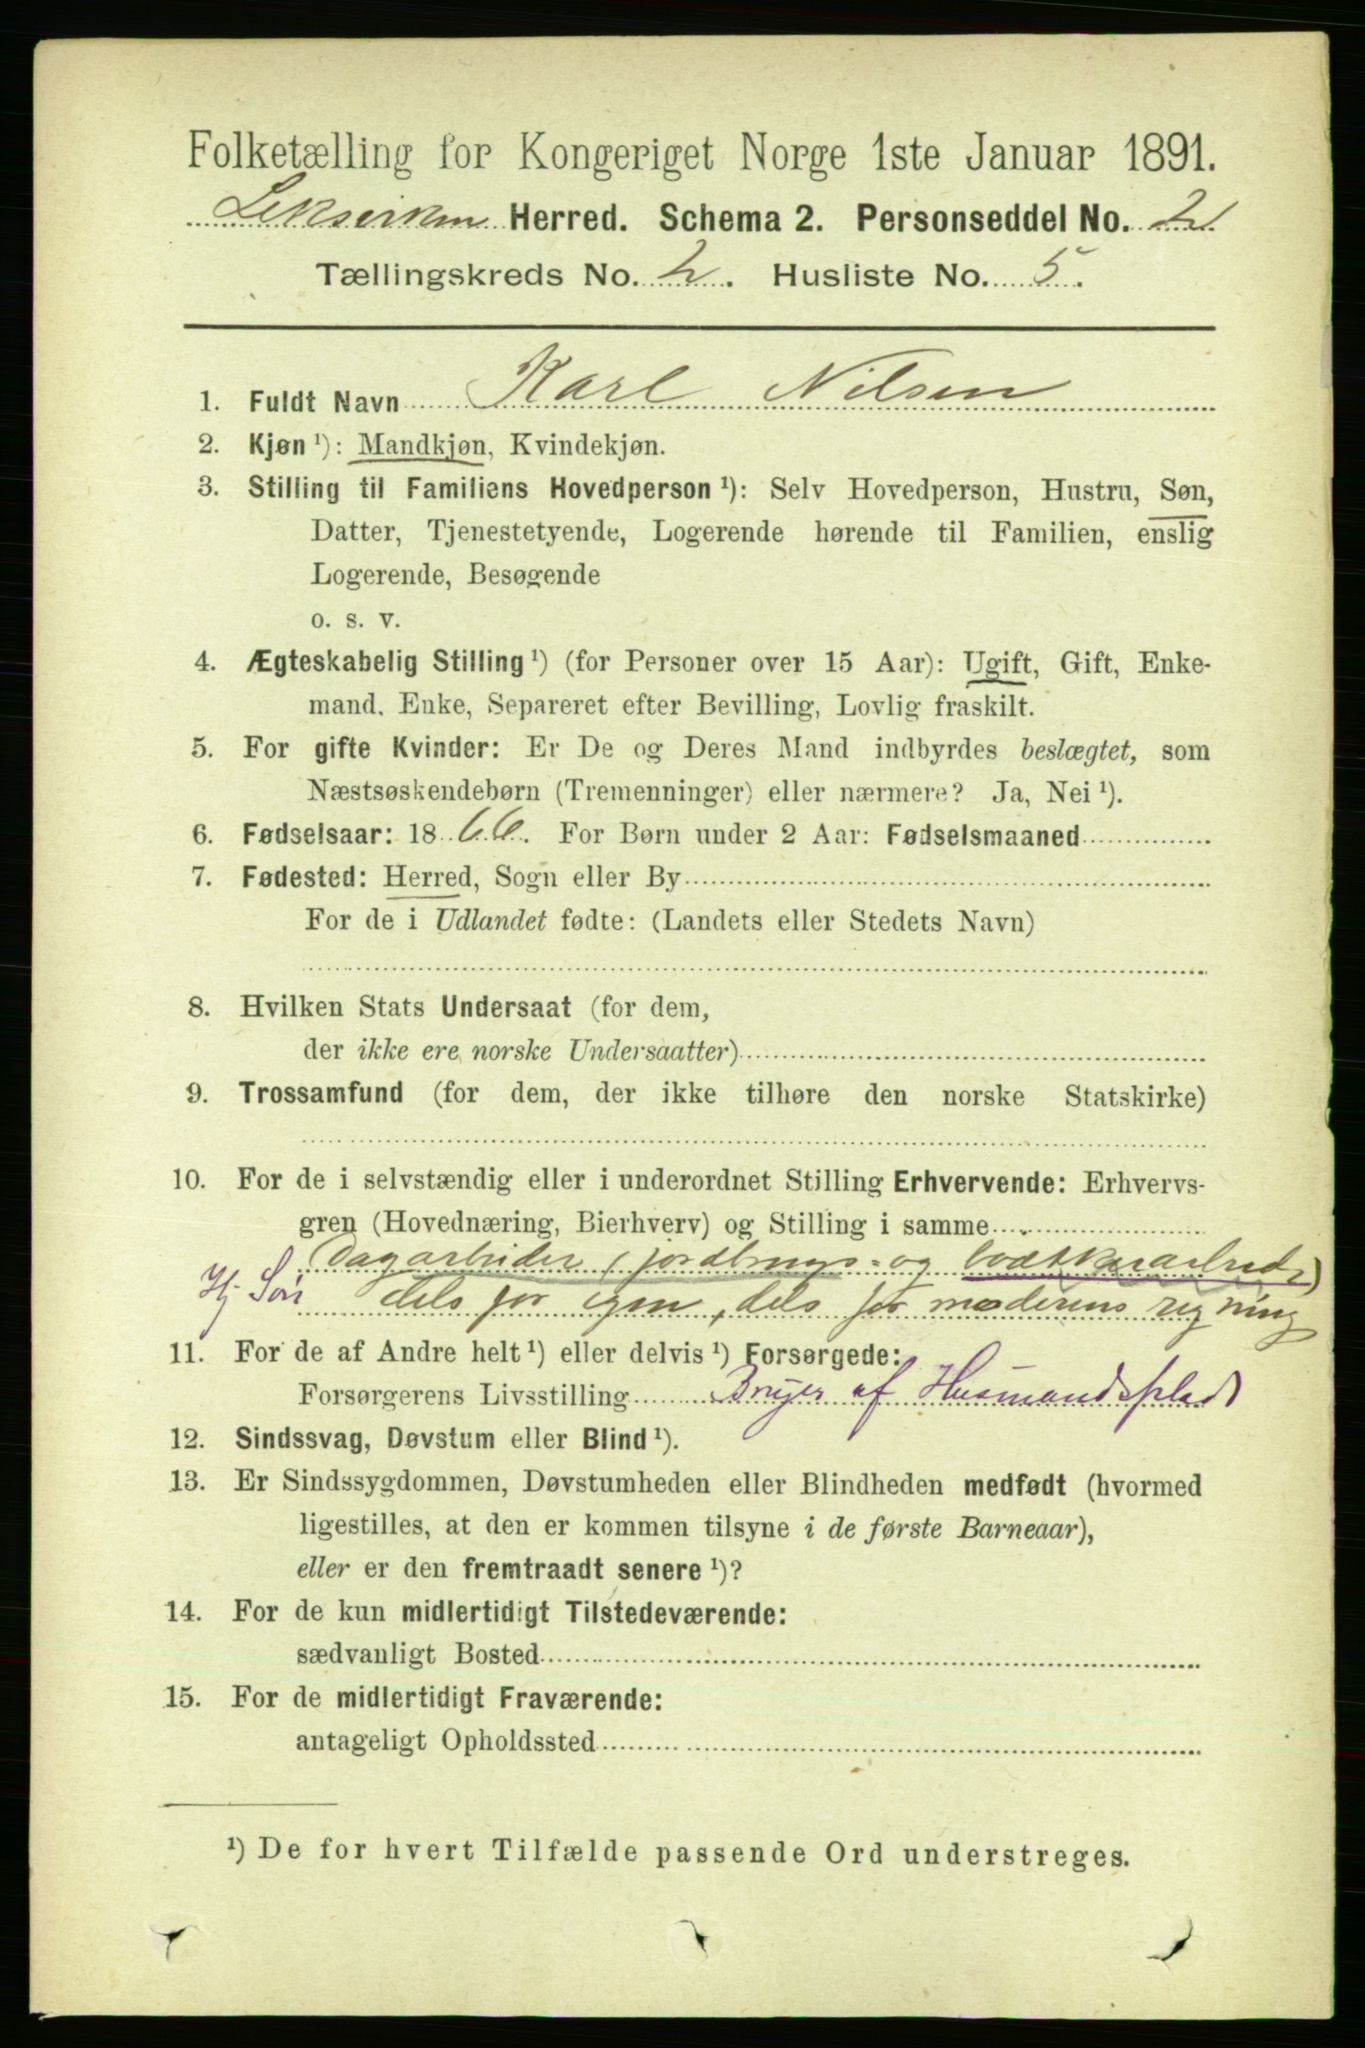 Folketælling for Kongeriget Norge 1ste Januar 1891.
Leksviken Herred. Schema 2. Personseddel No. 2
Tællingskreds No. 2. Husliste No. 5.
1. Fuldt Navn Karl Nilsen
2. Kjøn ¹): Mandkjøn, Kvindekjøn.
3. Stilling til Familiens Hovedperson ¹): Selv Hovedperson, Hustru, Søn,
Datter, Tjenestetyende, Logerende hørende til Familien, enslig
Logerende, Besøgende
o. s. v.
4. Ægteskabelig Stilling ¹) (for Personer over 15 Aar): Ugift, Gift, Enke-
mand, Enke, Separeret efter Bevilling, Lovlig fraskilt.
5. For gifte Kvinder: Er De og Deres Mand indbyrdes beslægtet, som
Næstsøskendebørn (Tremenninger) eller nærmere? Ja, Nei ¹).
6. Fødselsaar: 1866. For Børn under 2 Aar: Fødselsmaaned
7. Fødested: Herred, Sogn eller By
For de i Udlandet fødte: (Landets eller Stedets Navn)
8. Hvilken Stats Undersaat (for dem,
der ikke ere norske Undersaatter)
9. Trossamfund (for dem, der ikke tilhøre den norske Statskirke)
10. For de i selvstændig eller i underordnet Stilling Erhvervende: Erhvervs-
gren (Hovednæring, Bierhverv) og Stilling i samme
Dagarbeider (jordbrugs- og
Hj Søn dels for egen, dels for moderens regning
11. For de af Andre helt ¹) eller delvis ¹) Forsørgede:
Forsørgerens Livsstilling Bruger af Husmandsplads
12. Sindssvag, Døvstum eller Blind ¹).
13. Er Sindssygdommen, Døvstumheden eller Blindheden medfødt (hvormed
ligestilles, at den er kommen tilsyne i de første Barneaar),
eller er den fremtraadt senere ¹)?
14. For de kun midlertidigt Tilstedeværende:
sædvanligt Bosted
15. For de midlertidigt Fraværende:
antageligt Opholdssted
¹) De for hvert Tilfælde passende Ord understreges.